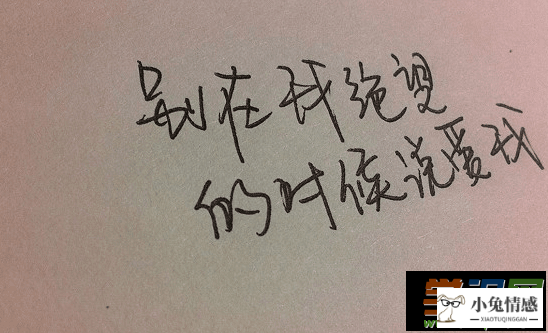 别在我绝望
的时候说爱我
小兔情感
XIAOTUQINGGAN